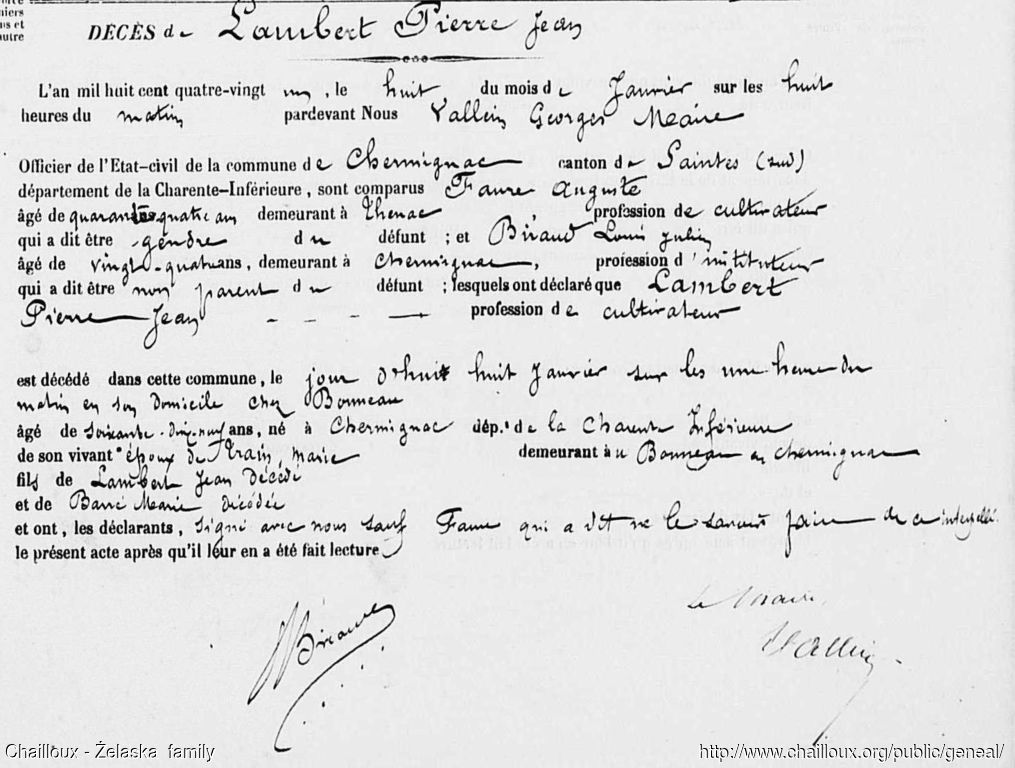 niers
ns et
autre
DÉCÈS de Lambert Pierre Jean
L'an mil huit cent quatre-vingt un, le huit du mois de Janvier sur les huit
heures du matin pardevant Nous Vallein Georges Maire
Officier de l'Etat-civil de la commune de Chermignac canton de Saintes (sud)
département de la Charente-Inférieure, sont comparus Faure Auguste
âgé de quarante quatre ans demeurant à Thenac profession de cultivateur
qui a dit être gendre du défunt ; et Biraud Louis Julien
âgé de vingt-quatre ans, demeurant à Chermignac, profession d'instituteur
qui a dit être non parent du défunt ; lesquels ont déclaré que Lambert
Pierre Jean profession de cultivateur
est décédé dans cette commune, le jour d'hui huit Janvier sur les une heure du
matin en son domicile chez Bonneau
âgé de soixante-dix-neuf ans, né à Chermignac dép.t de la Charente Inférieure
de son vivant époux de Train, Marie demeurant au Bonneau en Chermignac
fils de Lambert Jean décédé
et de Barré Marie décédée
et ont, les déclarants, signé avec nous sauf Faure qui a dit ne le savoir faire de ce interpellé.
le présent acte après qu'il leur en a été fait lecture
Le Maire,
Biraud
Vallein
Chailloux - Želaska family
http://www.chailloux.org/public/geneal/